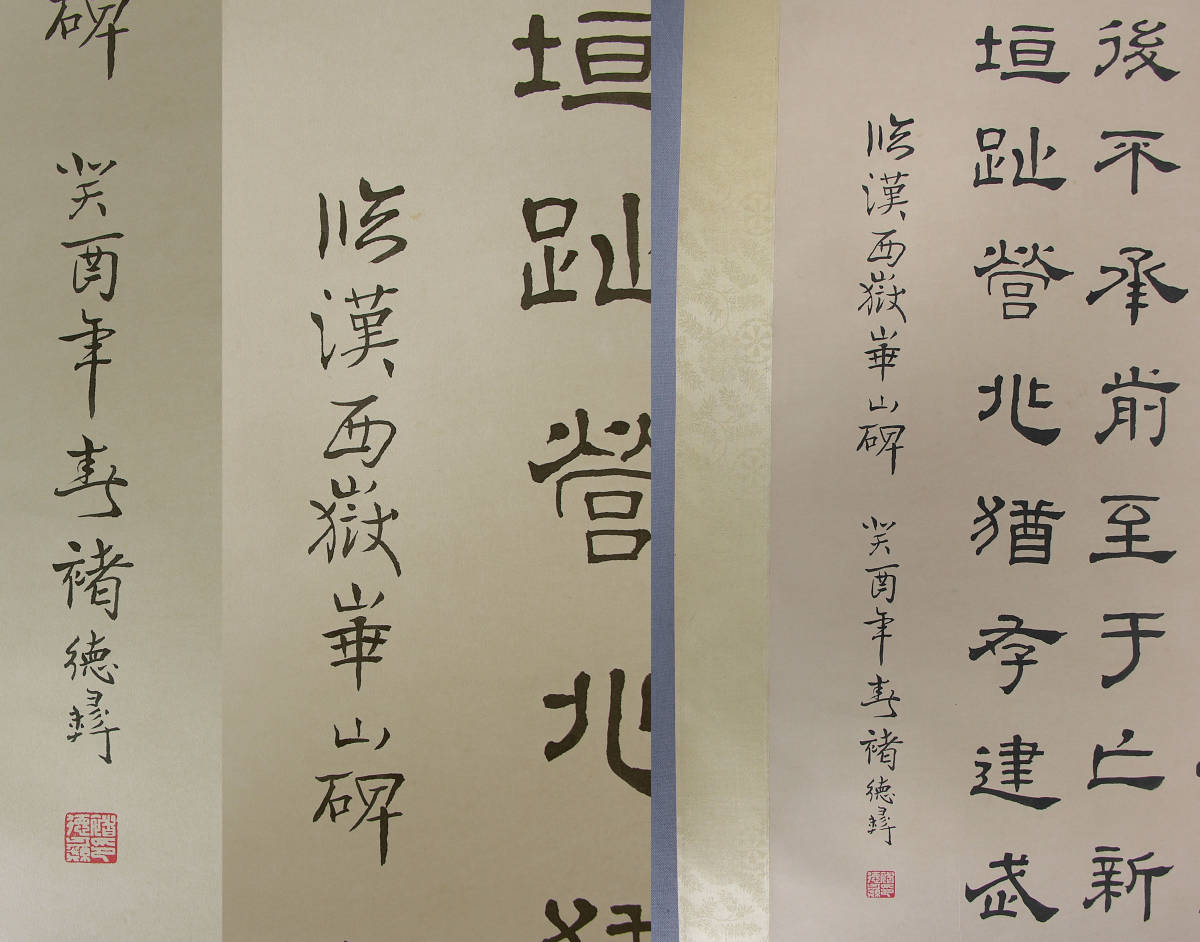 後不承前至于亡新
垣趾營兆猶存建武
臨漢西嶽華山碑 癸酉年春褚德彝
垣趾營兆猶
臨漢西嶽華山碑
碑 癸酉年春褚德彝